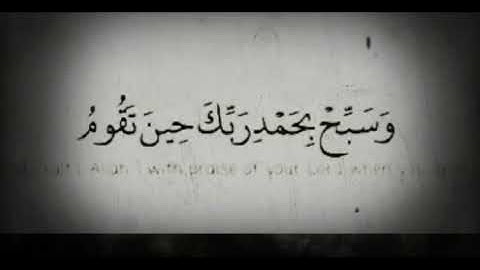 وَسَبِّحْ بِحَمْدِ رَبِّكَ حِينَ تَقُومُ
Allah with praise of your Lord when